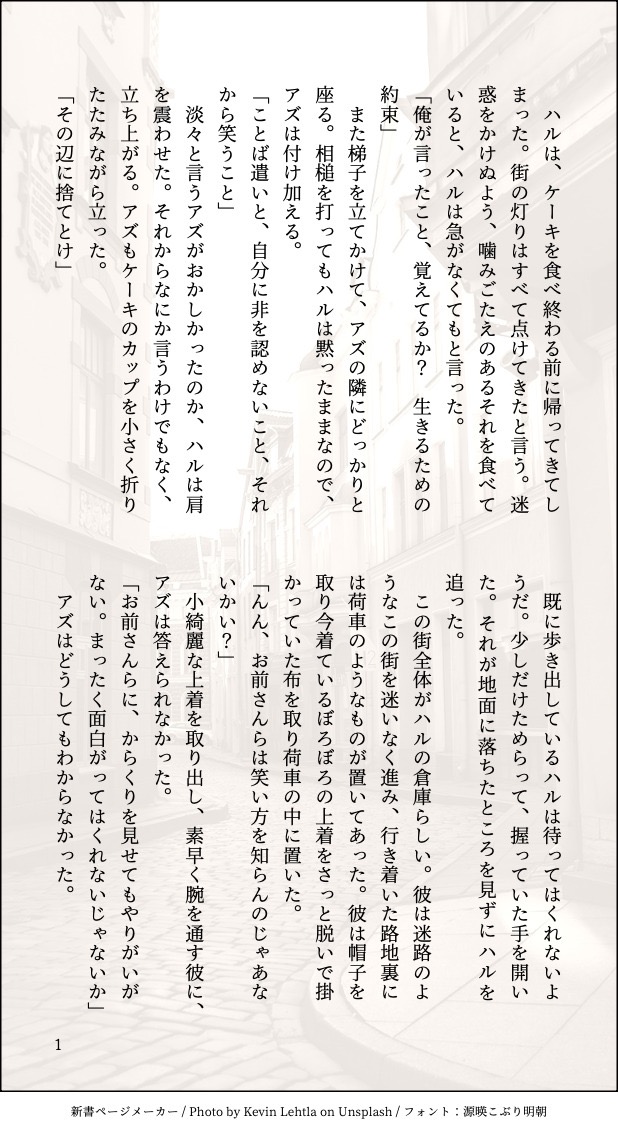 ハルは、ケーキを食べ終わる前に帰ってきてし
まった。街の灯りはすべて点けてきたと言う。迷
惑をかけぬよう、噛みごたえのあるそれを食べて
いると、ハルは急がなくてもと言った。
「俺が言ったこと、覚えてるか？　生きるための
約束」
また梯子を立てかけて、アズの隣にどっかりと
座る。相槌を打ってもハルは黙ったままなので、
アズは付け加える。
「ことば遣いと、自分に非を認めないこと、それ
から笑うこと」
淡々と言うアズがおかしかったのか、ハルは肩
を震わせた。それからなにか言うわけでもなく、
立ち上がる。アズもケーキのカップを小さく折り
たたみながら立った。
「その辺に捨てとけ」
既に歩き出しているハルは待ってはくれないよ
うだ。少しだけためらって、握っていた手を開い
た。それが地面に落ちたところを見ずにハルを
追った。
この街全体がハルの倉庫らしい。彼は迷路のよ
うなこの街を迷いなく進み、行き着いた路地裏に
は荷車のようなものが置いてあった。彼は帽子を
取り今着ているぼろぼろの上着をさっと脱いで掛
かっていた布を取り荷車の中に置いた。
「んん、お前さんらは笑い方を知らんのじゃあな
いかい？」
小綺麗な上着を取り出し、素早く腕を通す彼に、
アズは答えられなかった。
「お前さんらに、からくりを見せてもやりがいが
ない。まったく面白がってはくれないじゃないか」
アズはどうしてもわからなかった。
1
新書ページメーカー / Photo by Kevin Lehtla on Unsplash / フォント：源暎こぶり明朝